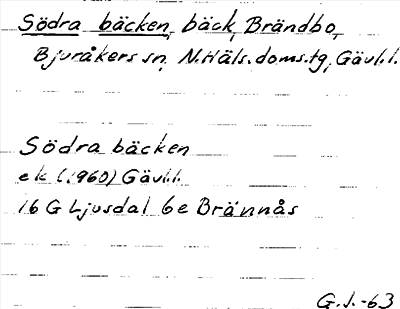 Södra bäcken, bäck, Brändbo,
Bjuråkers sn, N.Häls.doms.tg, Gävl.l.
Södra bäcken
ek (1960) Gävl.l.
16 G Ljusdal 6e Brännås
G.J.-63